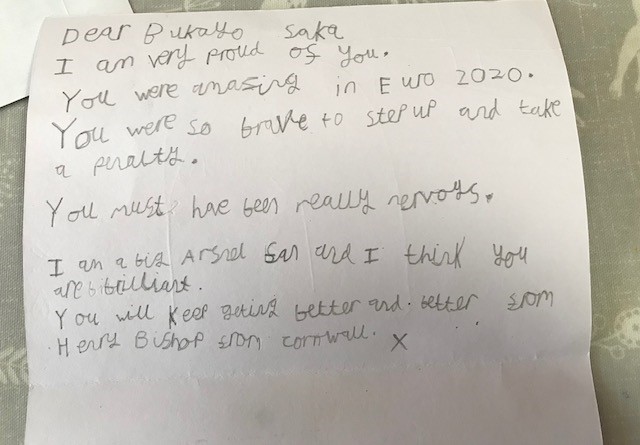 Dear Bukayo Saka
I am very proud of you.
You were amasing in Euro 2020.
You were so brave to step up and take
a penalty.
You must have been really nervoys.
I am a big Arsnel fan and I think you
are brilliant.
You will keep geting better and better from
Henry Bishop from cornwall. X